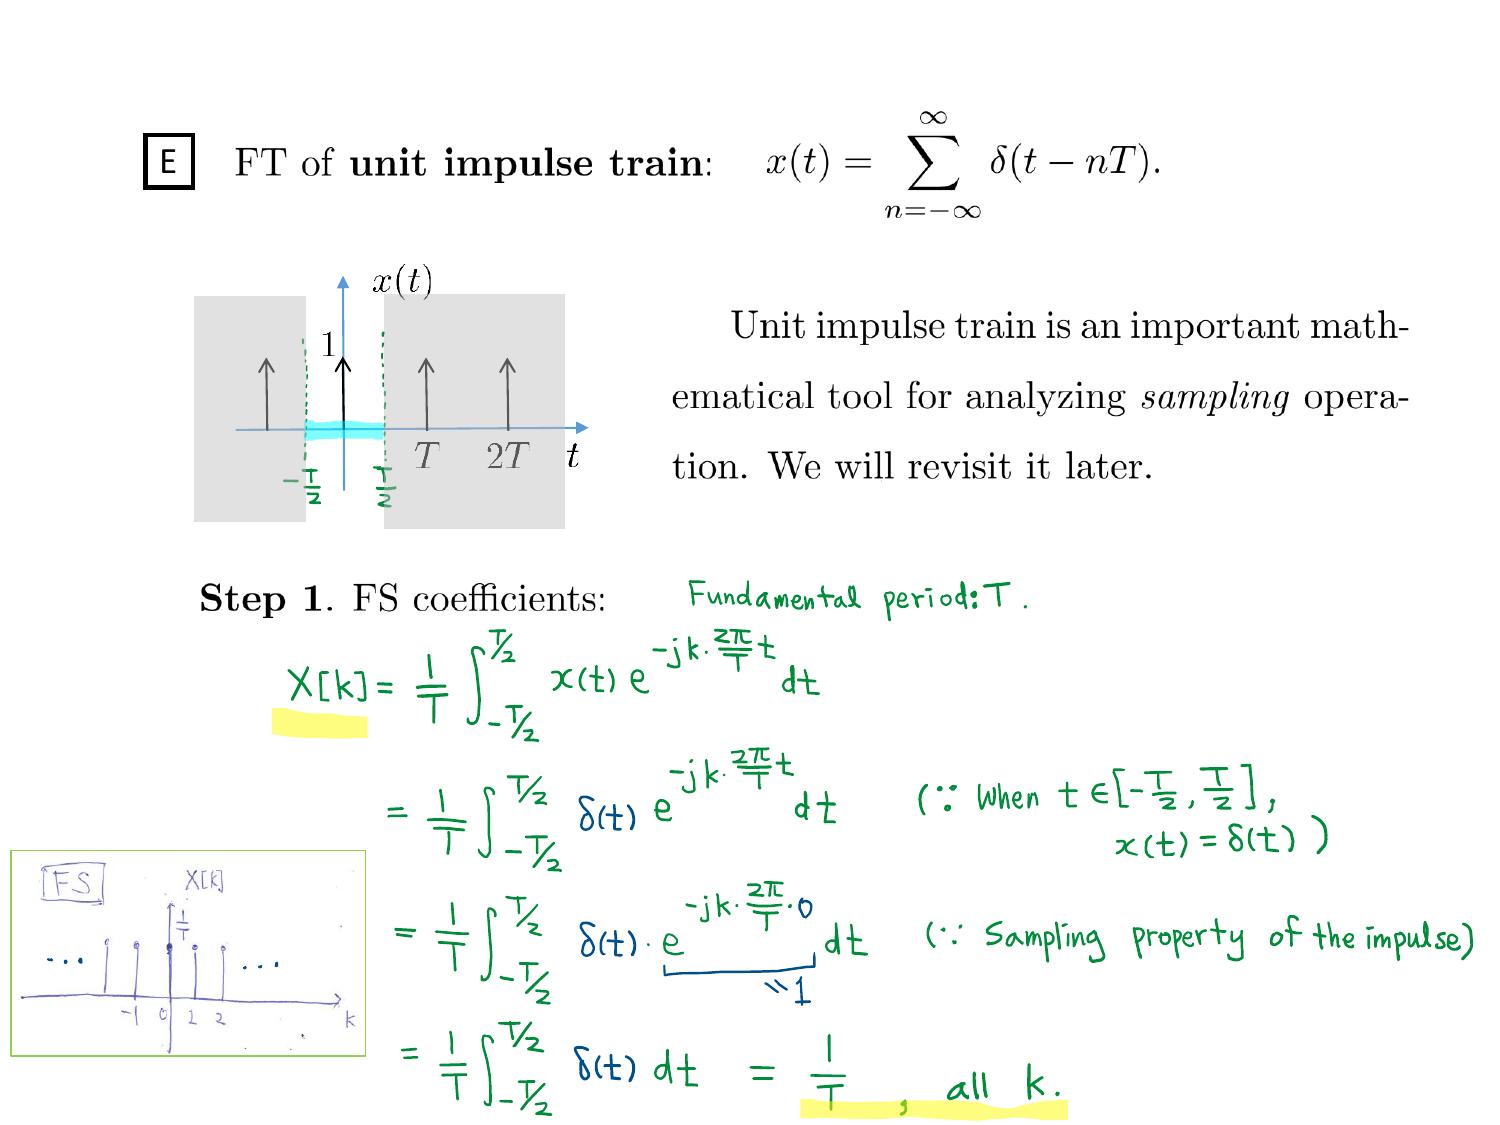 E FT of unit impulse train: x(t) = ∑_{n=−∞}^{∞} δ(t − nT).
x(t)
1
T 2T t
-T/2 T/2
Unit impulse train is an important math-
ematical tool for analyzing sampling opera-
tion. We will revisit it later.
Step 1. FS coefficients: Fundamental period: T.
X[k] = 1/T ∫_{-T/2}^{T/2} x(t) e^{-jk·2π/T t} dt
= 1/T ∫_{-T/2}^{T/2} δ(t) e^{-jk·2π/T t} dt (∵ When t ∈ [-T/2, T/2],
x(t) = δ(t))
= 1/T ∫_{-T/2}^{T/2} δ(t) · e^{-jk·2π/T·0} dt (∵ Sampling property of the impulse)
" 1
= 1/T ∫_{-T/2}^{T/2} δ(t) dt = 1/T , all k.
FS X[k]
1/T
... ...
-1 0 1 2 k